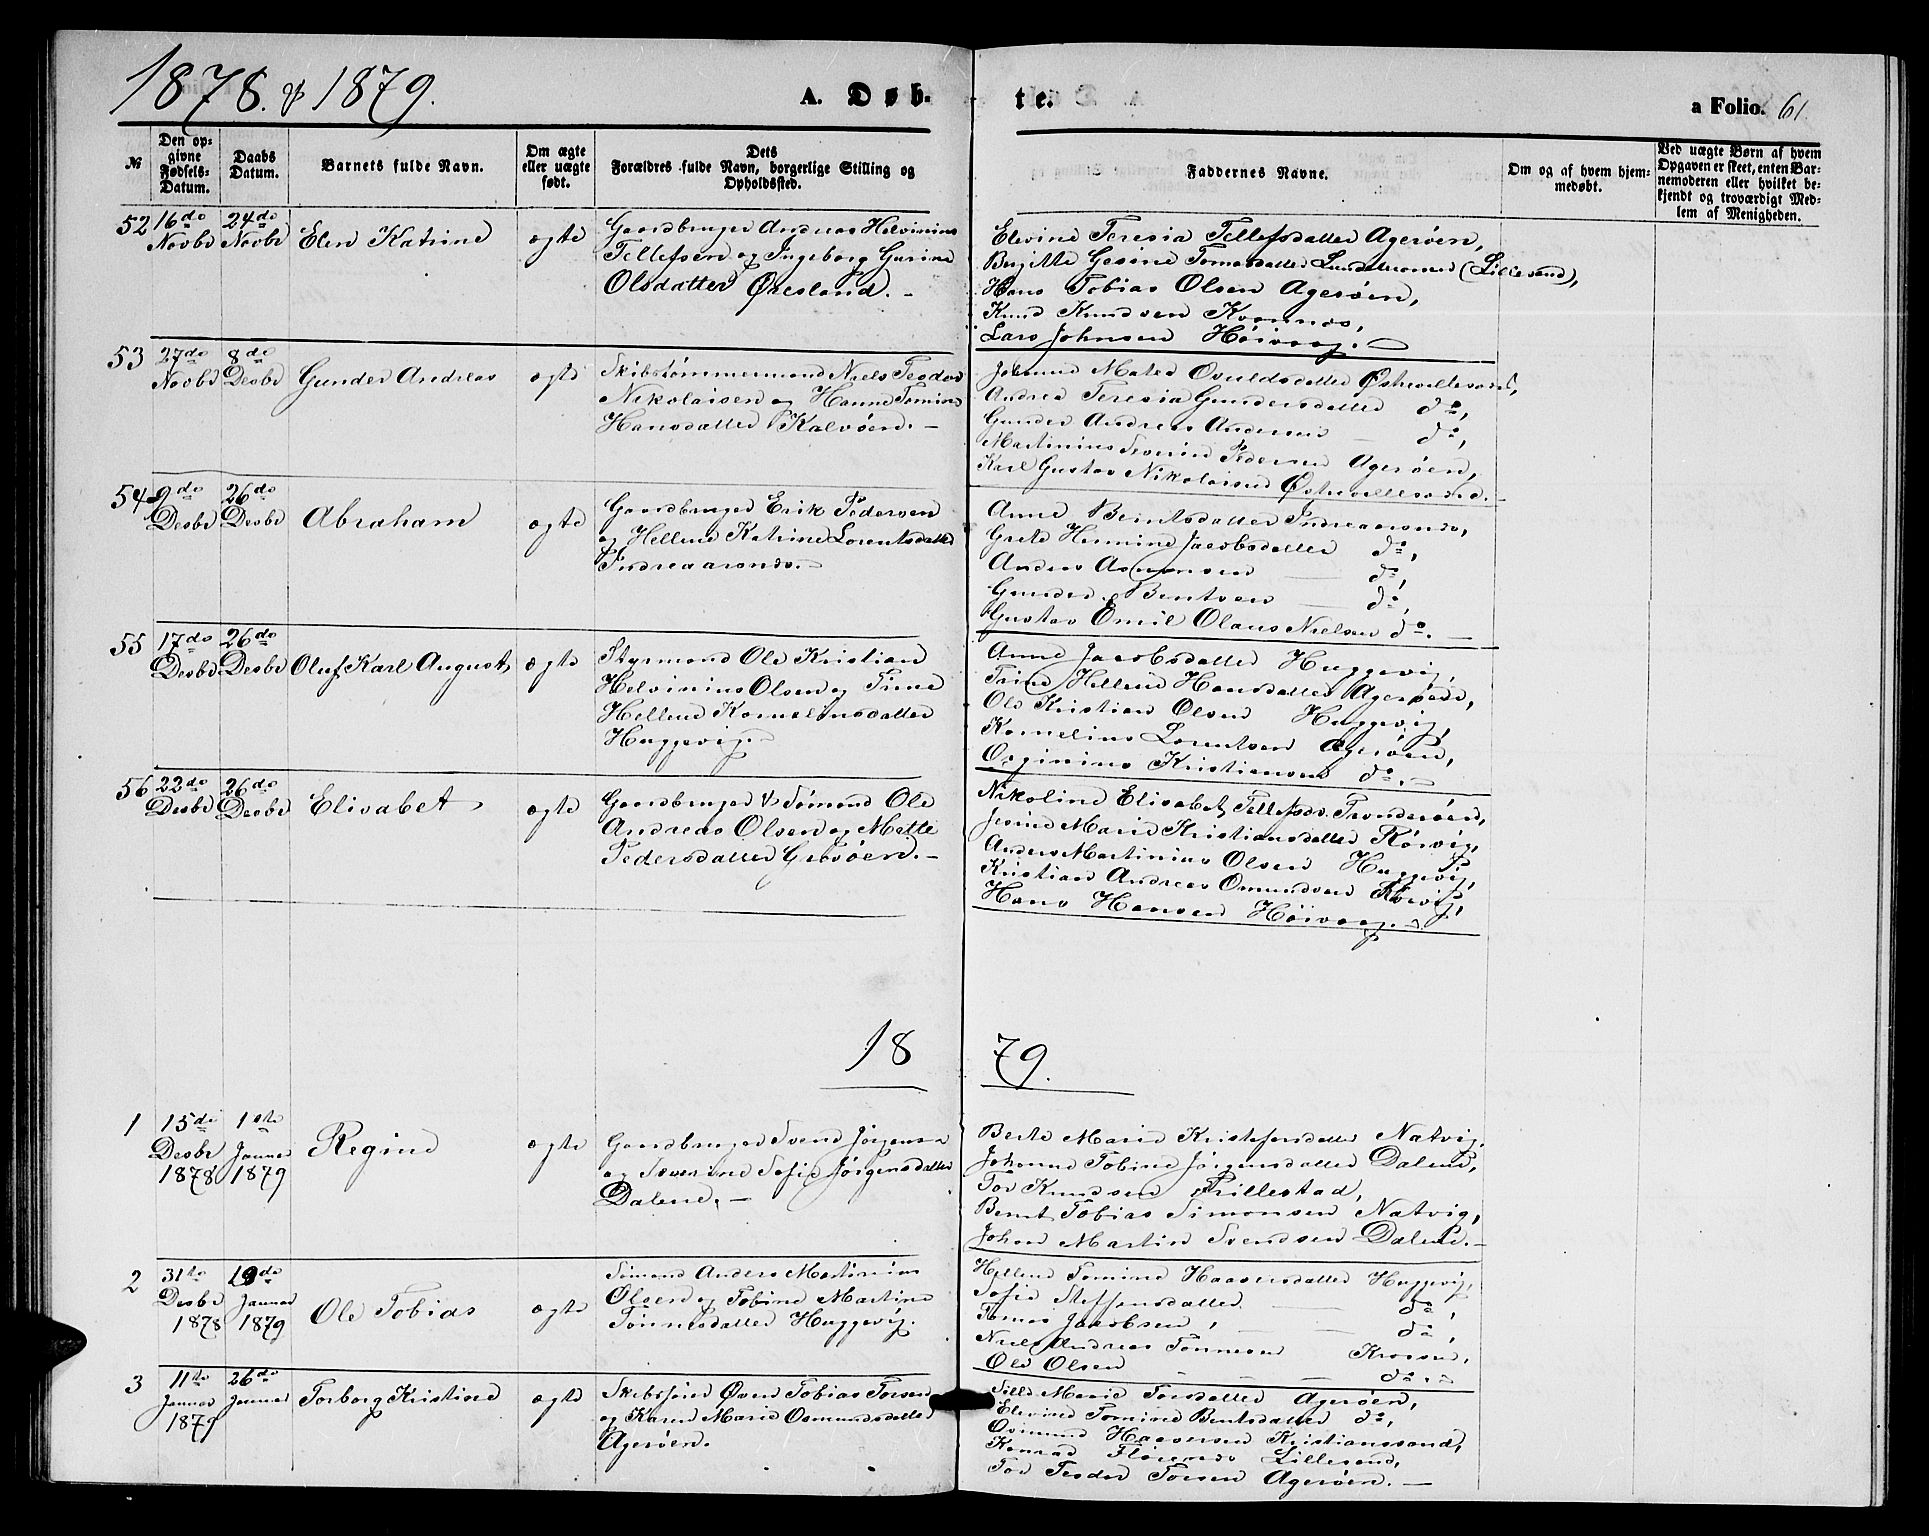 1878. & 1879.
A. Døb-
te.
a Folio. 61.
№
Den op-
givne
Fødsels-
Datum.
Daabs
Datum.
Barnets fulde Navn.
Om ægte
eller uægte
født.
Dets
Forældres fulde Navn, borgerlige Stilling og
Opholdssted.
Faddernes Navne.
Om og af hvem hjem-
medøbt.
Ved uægte Børn af hvem
Opgaven er skeet, enten Bar-
nemoderen eller hvilket be-
kjendt og troværdigt Med-
lem af Menigheden.
52
16de
Novbr
24de
Novbr
Elen Katrine
ægte
Gaardbruger Andreas Helvinius
Tellefsen og Ingeborg Gurine
Olsdatter Øresland. -
Elevine Teresia Tellefsdatter Agerøen,
Bergitte Gesine Tomasdatter (Lillesand),
Hans Tobias Olsen Agerøen,
Knud Knudsen Kvannes,
Lars Johnsen Høivaag. -
53
27de
Novbr
8de
Desbr
Gunder Andreas
ægte
Skibstømmermand Niels Teodor
Nikolaisen og Hanne Tomine
Hansdatter Kalvøen. -
Johanne Malea Osuldsdatter
Andrea Teresia Gundersdatter do,
Gunder Andreas Andersen - do,
Martinius Severin Pedersen Agerøen,
Karl Gustav Nikolaisen
54
2de
Desbr
26de
Desbr
Abraham
ægte
Gaardbruger Erik Pedersen
og Hellene Katrine Lorentsdatter
Indreaarsnes. -
Anne Berntsdatter Indreaarsnes,
Grete Hermine Jacobsdatter do,
Anders Asmonsen - do,
Gunder Bentsen - do,
Gustav Emil Olaus Nielsen do. -
55
17de
Desbr
26de
Desbr
Oluf Karl August
ægte
Styrmand Ole Kristian
Helvinius Olsen og Trine
Hellene Korneliusdatter
Huggevig. -
Anne Jacobsdatter Huggevig,
Trine Hellene Hansdatter Agerøen,
Ole Kristian Olsen Huggevig,
Kornelius Lorentsen Agerøen,
Orginius Kristiansen do. -
56
22de
Desbr
26de
Desbr
Elisabet
ægte
Gaardbruger & Sømand Ole
Andreas Olsen og Mette
Pedersdatter Grøsøen. -
Nikoline Elisabet Tellefsdr. Trondsrøen,
Jesine Marie Kristiansdatter Rørvig,
Anders Martinius Olsen Huggevig,
Kristian Andreas Omundsen Rørvig,
Hans Hansen Høivaag. -
18 79.
1
15de
Desbr
1878
1ste
Januar
1879
Regine
ægte
Gaardbruger Svend Jørgensen
og Severine Sofie Jørgensdatter
Dalene. -
Berte Marie Kristofersdatter Natvig,
Johanne Tobine Jørgensdatter Dalene,
Tor Knudsen Trillestad,
Bernt Tobias Simonsen Natvig,
Johan Martin Svendsen Dalene. -
2
31te
Desbr
1878
19de
Januar
1879
Ole Tobias
ægte
Sømand Anders Martinius
Olsen og Tobine Martine
Tønnesdatter Huggevig.
Hellene Tomine Haaversdatter Huggevig,
Sofie Steffensdatter do,
Tomas Jacobsen, - - do,
Niels Andreas Tønnesen Krossen,
Ole Olsen - - - do. -
3
11te
Januar
1879
26de
Januar
Torborg Kristine
ægte
Skibsfører Øven Tobias Torsen
og Karen Marie Osmundsdatter
Agerøen.
Sille Marie Torsdatter Agerøen,
Elevine Tomine Bentsdatter do,
Osmund Haaversen Kristianssand,
Konrad Florenes Lillesand,
Tor Teodor Torsen Agerøen. -